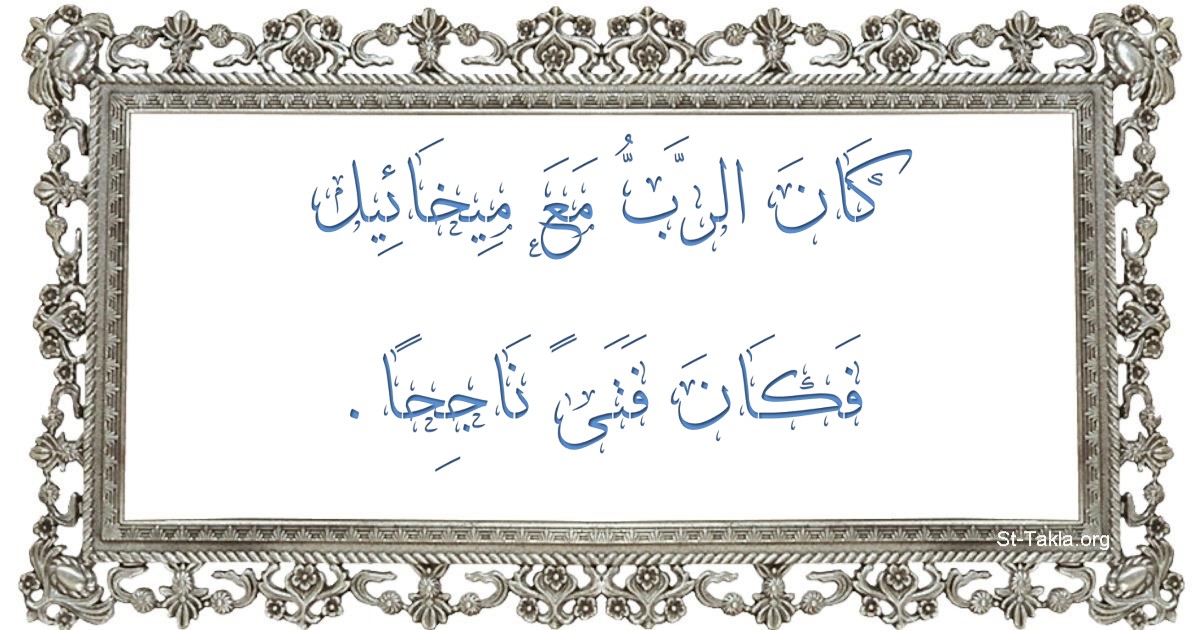 كَانَ الرَّبُّ مَعَ مِيخَائِيل
فَكَانَ فَتَىً نَاجِحًا .
St-Takla.org